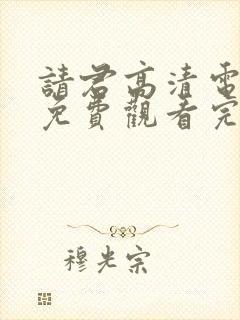 請君高清電
免費觀看完
穆光宗